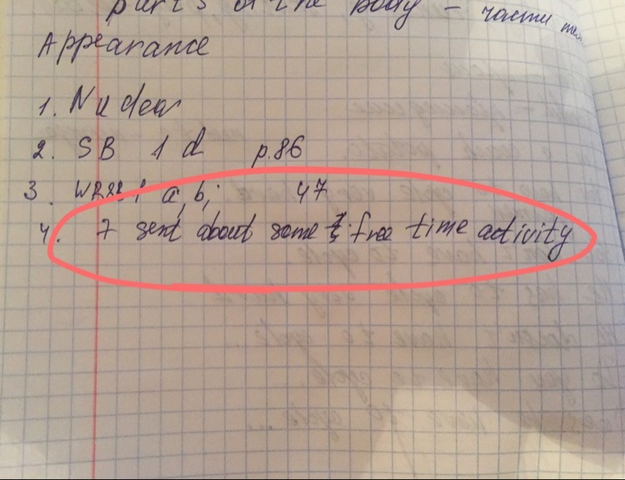 parts of the body – части
Appearance
1. Nuclear
2. SB 1 d p.86
3. a, b; 47
4. 7 sent about some free time activity